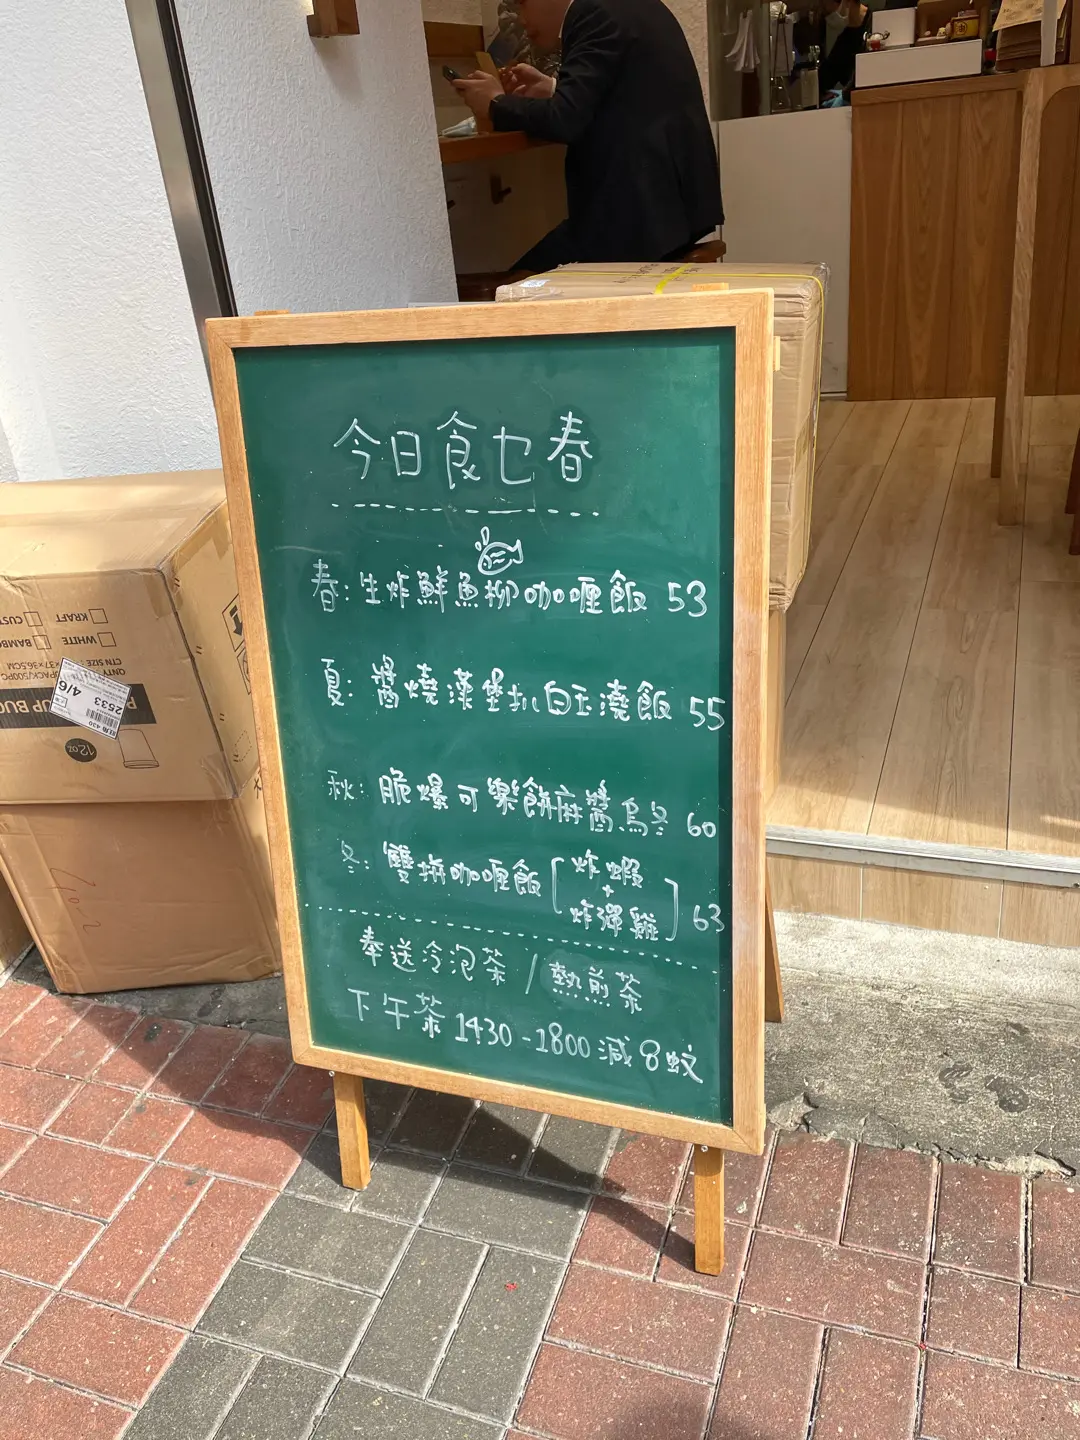 今日食乜春
春：生炸鮮魚柳咖喱飯 53
夏：醬燒漢堡扒白玉澆飯 55
秋：脆爆可樂餅麻醬烏冬 60
冬：雙拼咖喱飯 [炸蝦 + 炸彈雞] 63
奉送冷泡茶 / 熱煎茶
下午茶 1430-1800 減 8 蚊
KRAFT
WHITE
BAMBO
CTN SIZE
QNTY
2533
4/6
12oz